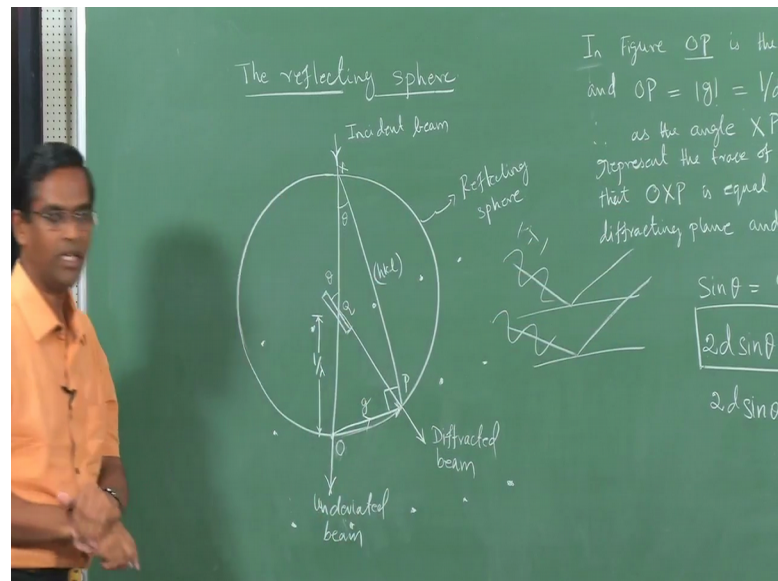 The reflecting sphere
Incident beam
X
θ
Reflecting
sphere
(hkl)
λ
θ
Q
1/λ
P
g
O
Diffracted
beam
Undeviated
beam
In Figure OP is the
and OP = |g| = 1/d
∴ as the angle XP
represent the trace of
that OXP is equal
diffracting plane and
Sinθ =
2d sinθ
2d sinθ